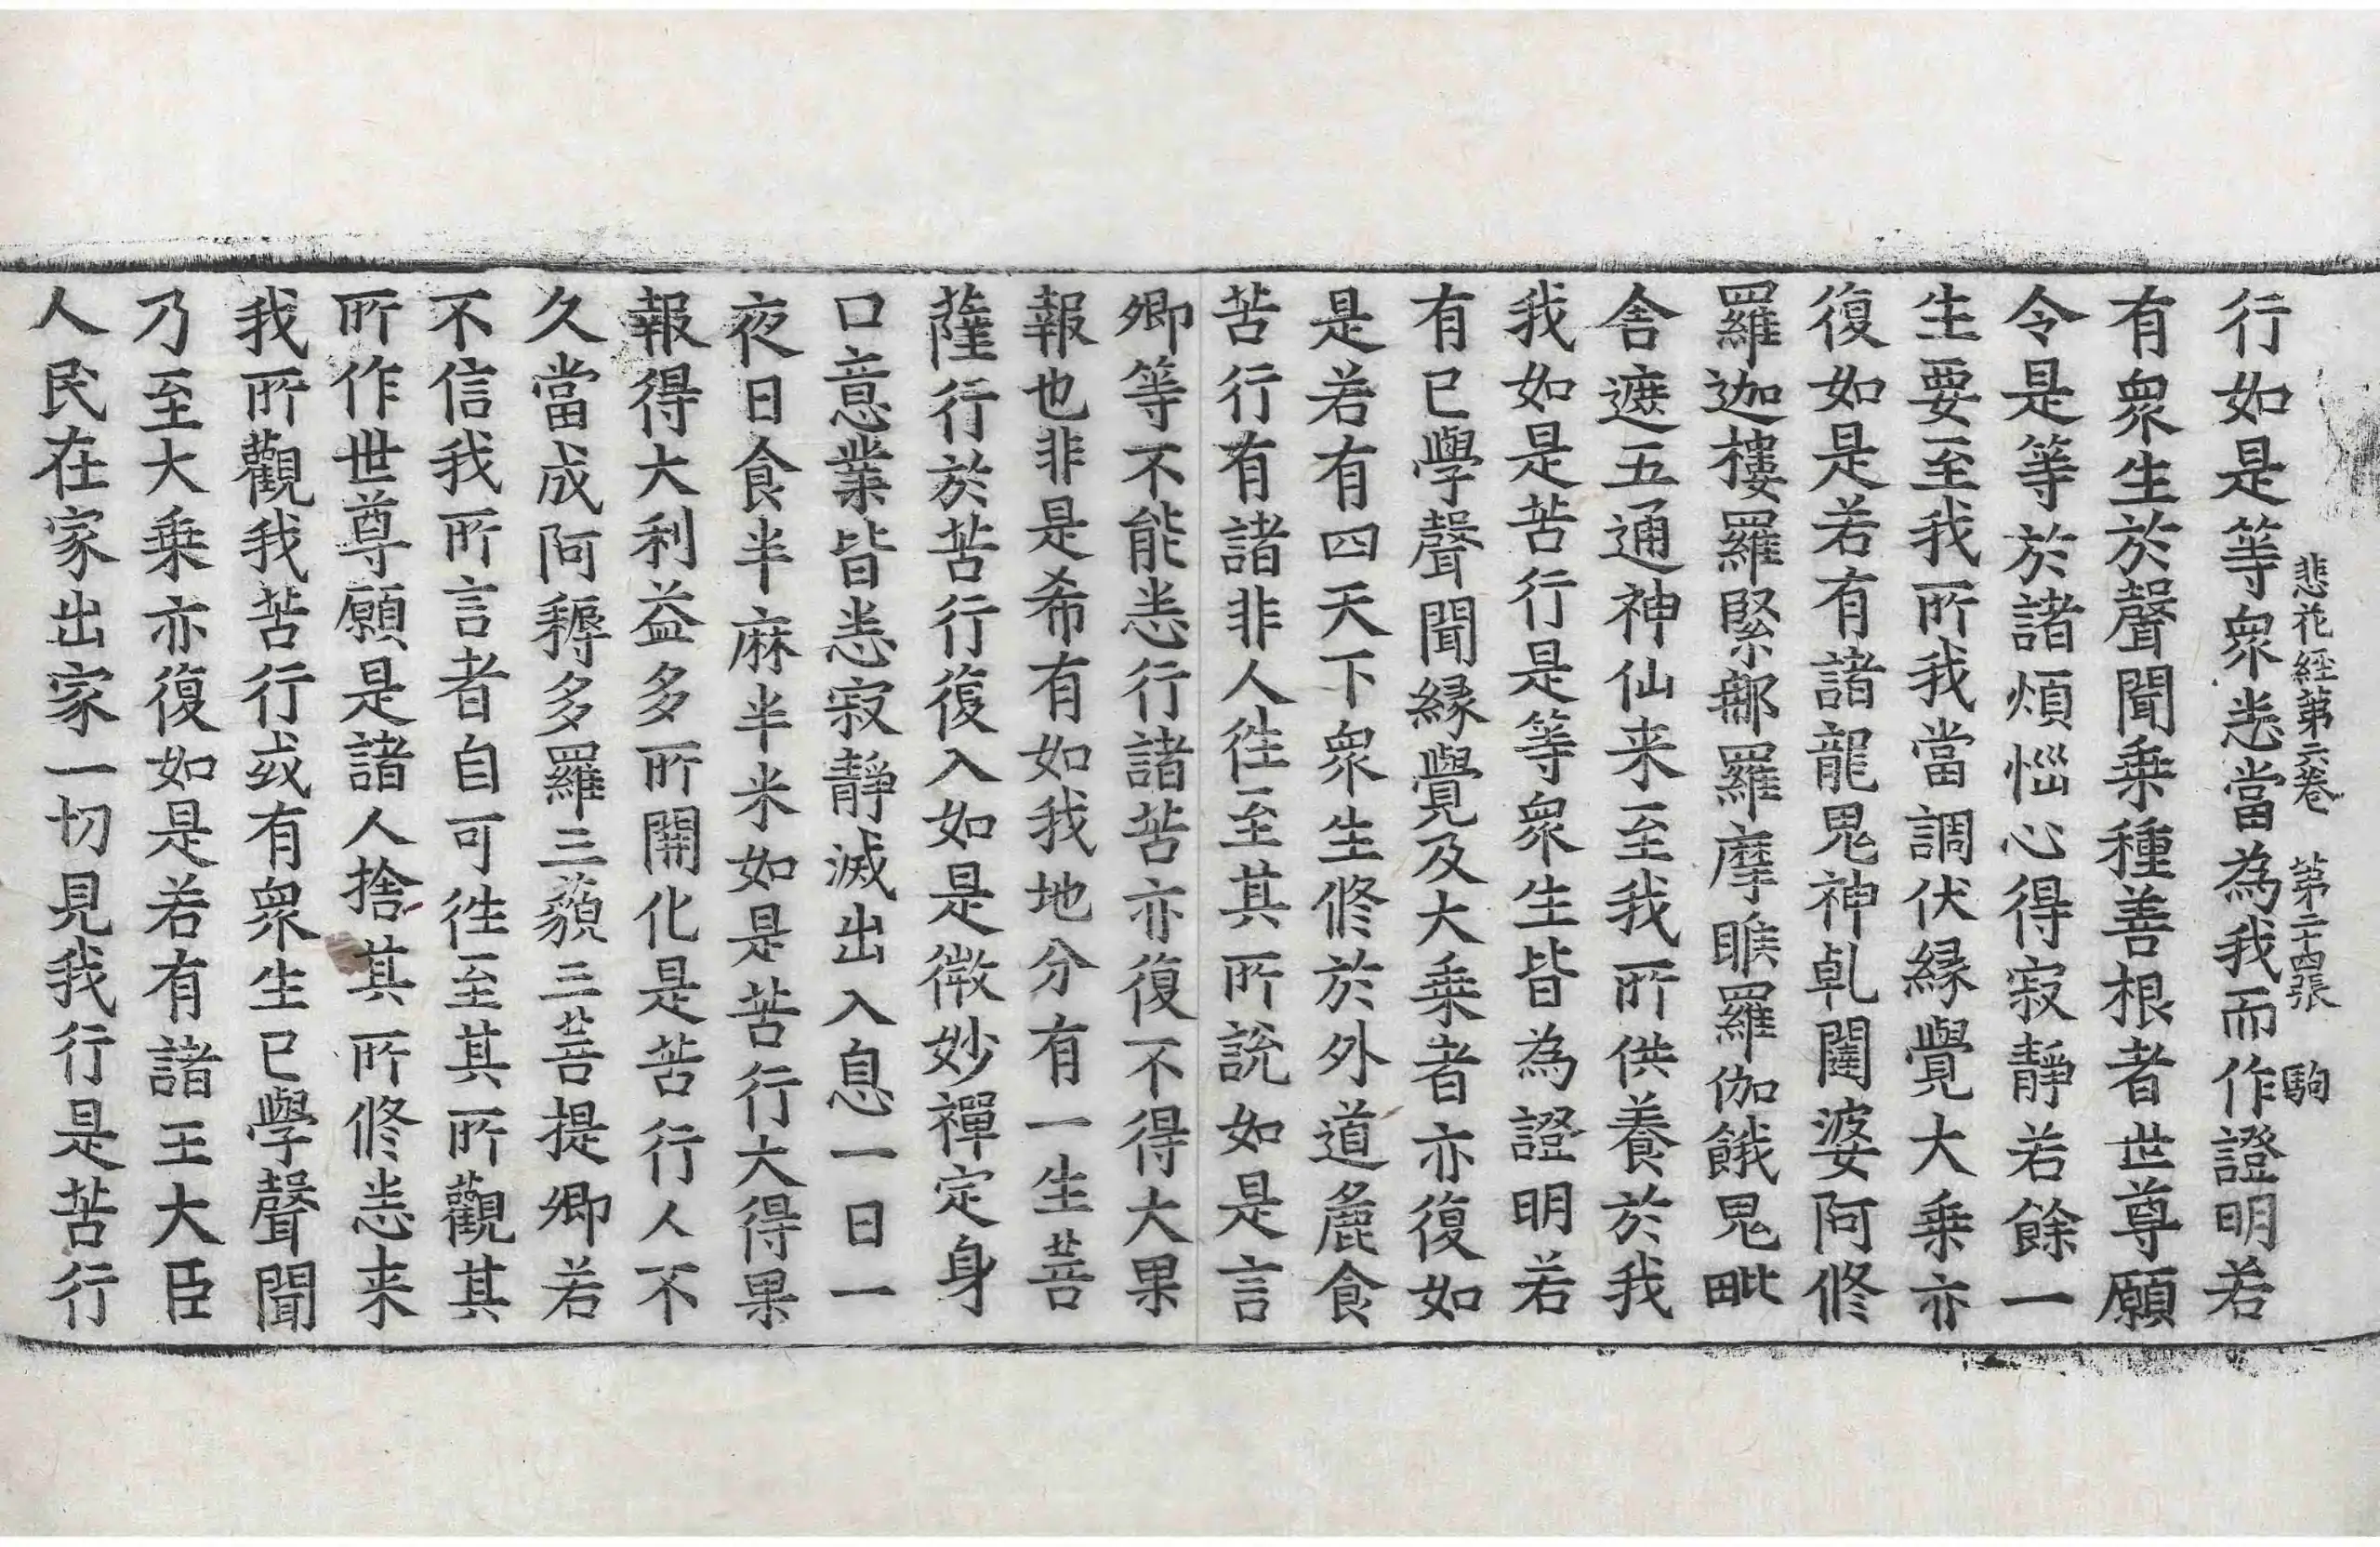 悲花經第六卷　第二十四張　駒
行如是等衆悉當為我而作證明若
有衆生於聲聞乗種善根者世尊願
令是等於諸煩惱心得寂靜若餘一
生要至我所我當調伏縁覺大乗亦
復如是若有諸龍鬼神乹闥婆阿修
羅迦樓羅緊那羅摩睺羅伽餓鬼毗
舍遮五通神仙来至我所供養於我
我如是苦行是等衆生皆為證明若
有已學聲聞縁覺及大乗者亦復如
是若有四天下衆生修於外道麁食
苦行有諸非人徃至其所說如是言
卿等不能悉行諸苦亦復不得大果
報也非是希有如我地分有一生菩
薩行於苦行復入如是微妙禪定身
口意業皆悉寂靜滅出入息一日一
夜日食半麻半米如是苦行大得果
報得大利益多所開化是苦行人不
久當成阿耨多羅三藐三菩提卿若
不信我所言者自可徃至其所觀其
所作世尊願是諸人捨其所修悉来
我所觀我苦行或有衆生已學聲聞
乃至大乗亦復如是若有諸王大臣
人民在家出家一切見我行是苦行